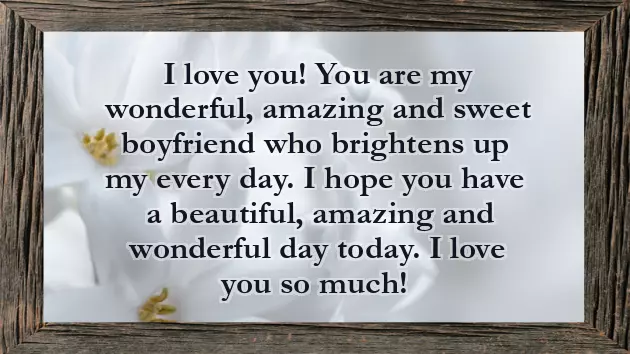 I love you! You are my
wonderful, amazing and sweet
boyfriend who brightens up
my every day. I hope you have
a beautiful, amazing and
wonderful day today. I love
you so much!